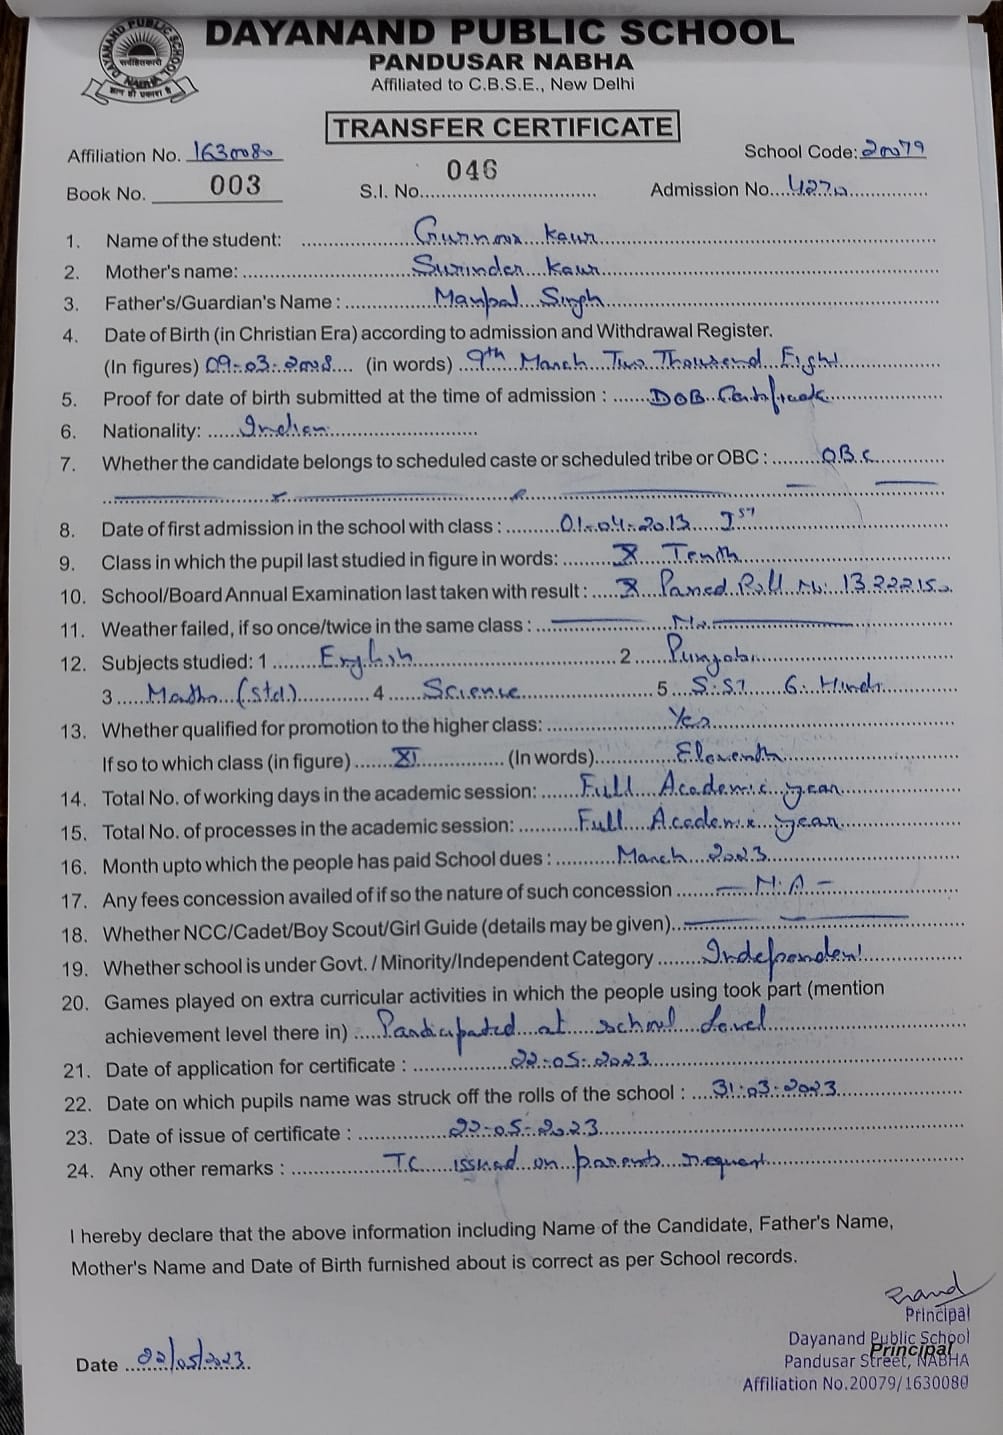 DAYANAND PUBLIC SCHOOL
PANDUSAR NABHA
Affiliated to C.B.S.E., New Delhi
TRANSFER CERTIFICATE
Affiliation No. 1630080 School Code: 20079
Book No. 003 S.I. No. 046 Admission No. 4270
1. Name of the student: Kaur
2. Mother's name: Surinder Kaur
3. Father's/Guardian's Name : Singh
4. Date of Birth (in Christian Era) according to admission and Withdrawal Register.
(In figures) 09-03-2008 (in words) 9th March Two Thousand Eight
5. Proof for date of birth submitted at the time of admission : DOB Certificate
6. Nationality: Indian
7. Whether the candidate belongs to scheduled caste or scheduled tribe or OBC : O.B.C
8. Date of first admission in the school with class : 01-04-2013 Ist
9. Class in which the pupil last studied in figure in words: X Tenth
10. School/Board Annual Examination last taken with result : X Passed Roll No. 13222150
11. Weather failed, if so once/twice in the same class : No
12. Subjects studied: 1 English 2 Punjabi
3 Maths (Std) 4 Science 5 S.ST 6. Hindi
13. Whether qualified for promotion to the higher class: Yes
If so to which class (in figure) XI (In words) Eleventh
14. Total No. of working days in the academic session: Full Academic year
15. Total No. of processes in the academic session: Full Academic year
16. Month upto which the people has paid School dues : March 2023
17. Any fees concession availed of if so the nature of such concession - N.A -
18. Whether NCC/Cadet/Boy Scout/Girl Guide (details may be given)
19. Whether school is under Govt. / Minority/Independent Category Independent
20. Games played on extra curricular activities in which the people using took part (mention
achievement level there in) Participated at school Level
21. Date of application for certificate : 22-05-2023
22. Date on which pupils name was struck off the rolls of the school : 31-03-2023
23. Date of issue of certificate : 22-05-2023
24. Any other remarks : T.C issued on parents request
I hereby declare that the above information including Name of the Candidate, Father's Name,
Mother's Name and Date of Birth furnished about is correct as per School records.
Principal
Dayanand Public School
Principal
Pandusar Street, NABHA
Date 22/05/2023
Affiliation No.20079/1630080